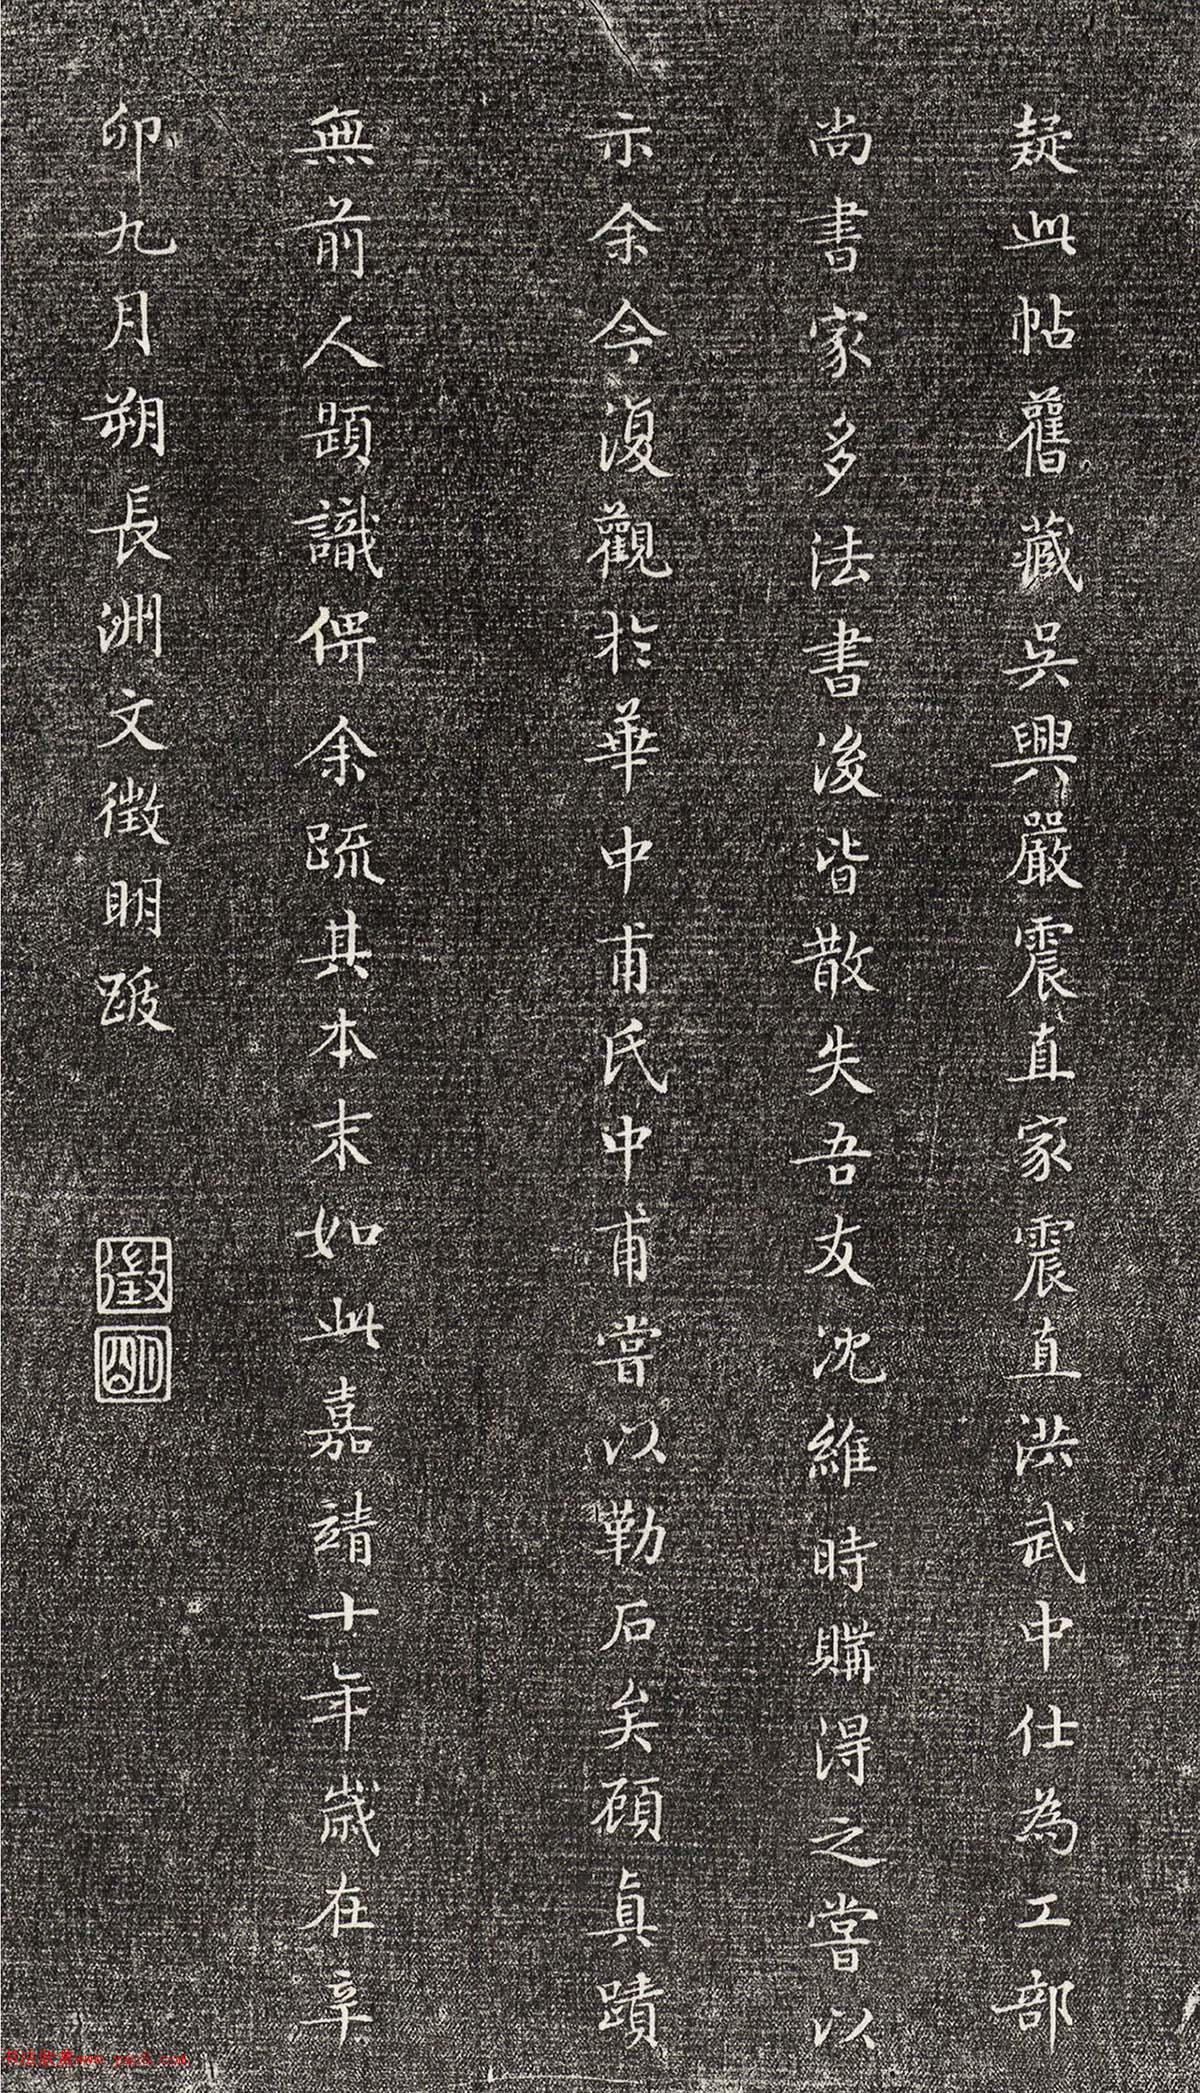 疑此帖舊藏吳興嚴震直家震直洪武中仕為工部
尚書家多法書後皆散失吾友沈維時購得之嘗以
示余今復觀於華中甫氏中甫嘗以勒石矣顧真蹟
無前人題識俾余疏其本末如此嘉靖十年歲在辛
卯九月朔長洲文徵明跋
徵
明